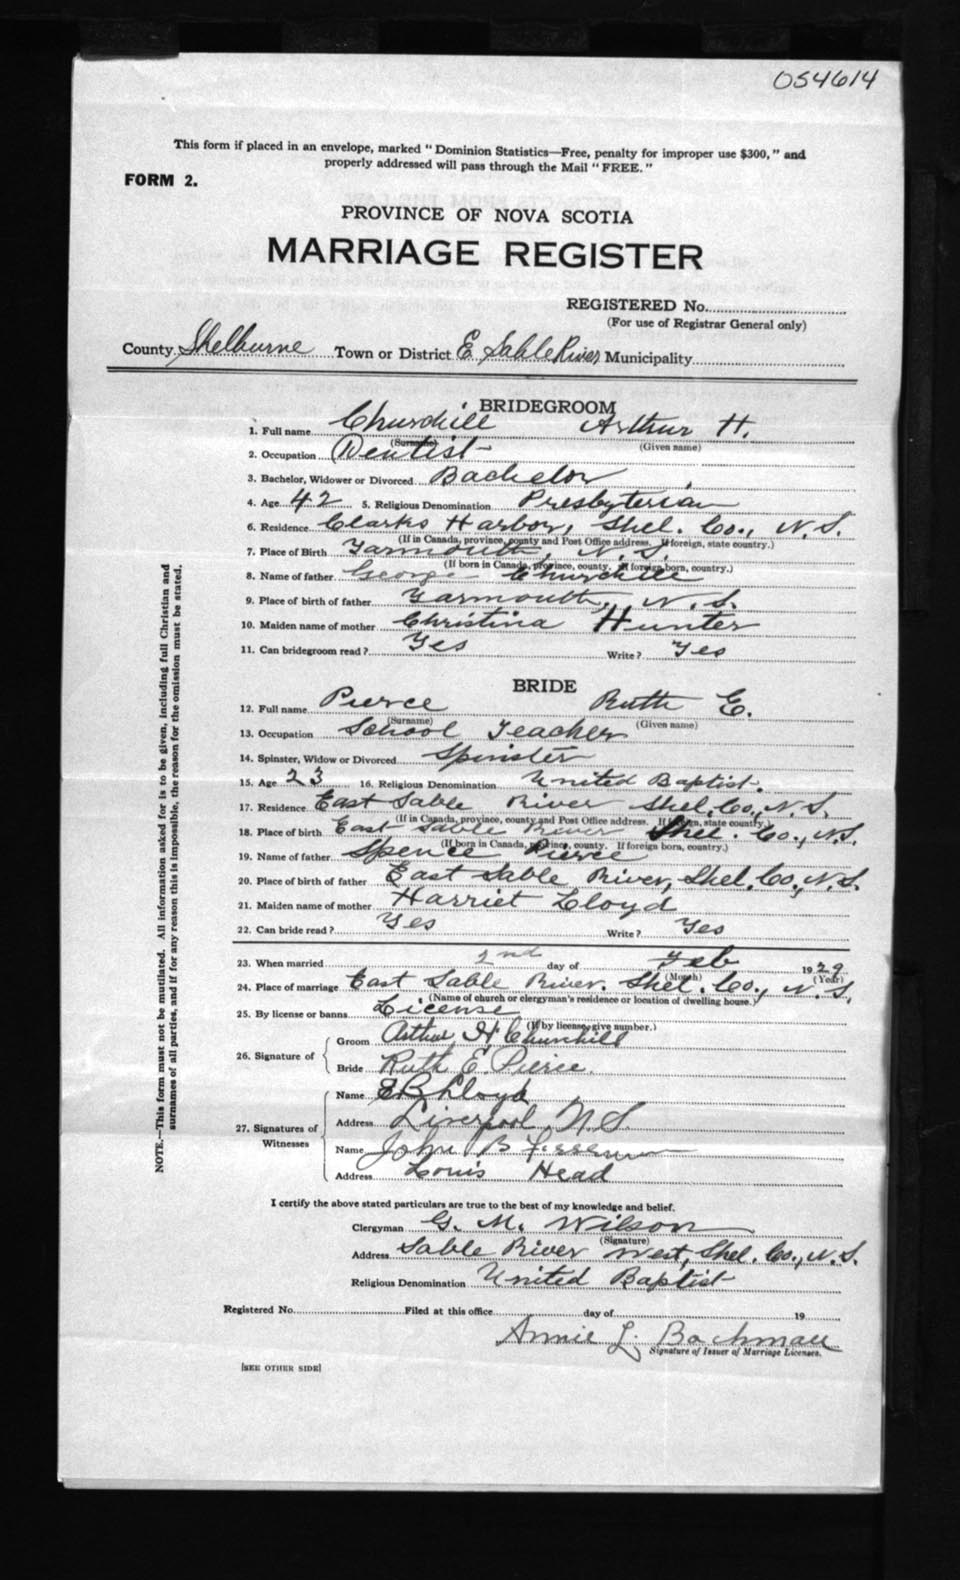 054614
This form if placed in an envelope, marked "Dominion Statistics—Free, penalty for improper use $300," and
properly addressed will pass through the Mail "FREE."
FORM 2.
PROVINCE OF NOVA SCOTIA
MARRIAGE REGISTER
REGISTERED No.
(For use of Registrar General only)
County Shelburne Town or District E. Sable River Municipality
BRIDEGROOM
1. Full name Churchill Arthur H.
(Surname) (Given name)
2. Occupation Dentist
3. Bachelor, Widower or Divorced Bachelor
4. Age 42 5. Religious Denomination Presbyterian
6. Residence Clarks Harbor, Shel. Co., N.S.
(If in Canada, province, county and Post Office address. If foreign, state country.)
7. Place of Birth Yarmouth, N.S.
(If born in Canada, province, county. If foreign born, country.)
8. Name of father George Churchill
9. Place of birth of father Yarmouth, N.S.
10. Maiden name of mother Christina Hunter
11. Can bridegroom read? Yes Write? Yes
BRIDE
12. Full name Pierce Ruth E.
(Surname) (Given name)
13. Occupation School Teacher
14. Spinster, Widow or Divorced Spinster
15. Age 23 16. Religious Denomination United Baptist.
17. Residence East Sable River Shel. Co., N.S.
(If in Canada, province, county and Post Office address. If foreign, state country.)
18. Place of birth East Sable River Shel. Co., N.S.
(If born in Canada, province, county. If foreign born, country.)
19. Name of father Spence Pierce
20. Place of birth of father East Sable River, Shel. Co., N.S.
21. Maiden name of mother Harriet Lloyd
22. Can bride read? Yes Write? Yes
23. When married 2nd day of Feb 1929
(Month) (Year)
24. Place of marriage East Sable River. Shel. Co., N.S.
(Name of church or clergyman's residence or location of dwelling house.)
25. By license or banns License
(If by license, give number.)
26. Signature of
Groom Arthur H Churchill
Bride Ruth E. Pierce.
27. Signatures of
Witnesses
Name E B Lloyd
Address Liverpool, N.S
Name John B Freeman
Address Louis Head
I certify the above stated particulars are true to the best of my knowledge and belief.
Clergyman G. M. Wilson
(Signature)
Address Sable River West, Shel. Co., N.S.
Religious Denomination United Baptist
Registered No. Filed at this office day of 19
Annie L. Bachman
Signature of Issuer of Marriage Licenses.
[SEE OTHER SIDE]
NOTE.—This form must not be mutilated. All information asked for is to be given, including full Christian and
surnames of all parties, and if for any reason this is impossible, the reason for the omission must be stated.